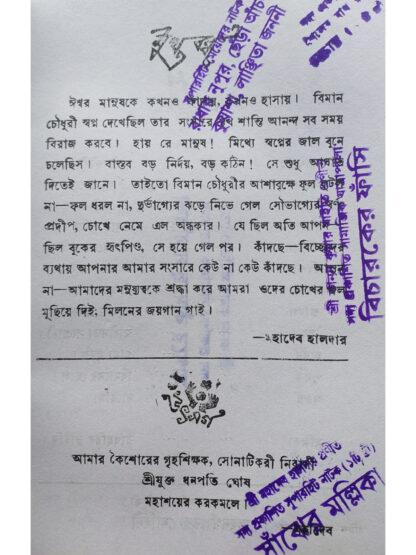 ঈশ্বর মানুষকে কখনও কখনও হাসায়। বিমান
চৌধুরী স্বপ্ন দেখেছিল তার সংসারে সুখ শান্তি আনন্দ সব সময়
বিরাজ করবে। হায় রে মানুষ! মিথ্যে স্বপ্নের জাল বুনে
চলেছিস। বাস্তব বড় নির্দয়, বড় কঠিন! সে শুধু আঘাত
দিতেই জানে। তাইতো বিমান চৌধুরীর আশাবৃক্ষে ফুল ফুটল
না—ফল ধরল না, দুর্ভাগ্যের ঝড়ে নিভে গেল সৌভাগ্যের
প্রদীপ, চোখে নেমে এল অন্ধকার। যে ছিল অতি আপন
ছিল বুকের হৃৎপিণ্ড, সে হয়ে গেল পর। কাঁদছে—বিচ্ছেদের
ব্যথায় আপনার আমার সংসারে কেউ না কেউ কাঁদছে।
না—আমাদের মনুষ্যত্বকে শ্রদ্ধা করে আমরা ওদের চোখের জল
মুছিয়ে দিই; মিলনের জয়গান গাই।
—মহাদেব হালদার
উৎসর্গ
আমার কৈশোরের গৃহশিক্ষক, সোনাটিকরী নিবাসী
শ্রীযুক্ত ধনপতি ঘোষ
মহাশয়ের করকমলে
—মহাদেব
সুপারহিট মেয়েদের নাটক
নূপুর, ছেঁড়া আঁচল
লাঞ্ছিতা জননী
সদ্য প্রকাশিত সামাজিক
বিচারকের ফাঁসি
শ্রী মহাদেব হালদার প্রণীত
সদ্য প্রকাশিত সুপারহিট নাটক
সাঁঝের মল্লিকা